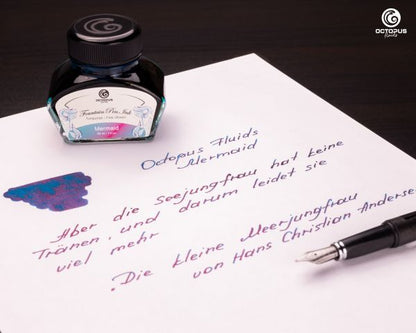 OCTOPUS
fluids
OCTOPUS
Fountain Pen Ink
Mermaid
Octopus Fluids
Mermaid
Aber die Seejungfrau hat keine
Tränen, und darum leidet sie
viel mehr
. Die kleine Meerjungfrau
von Hans Christian Anderse